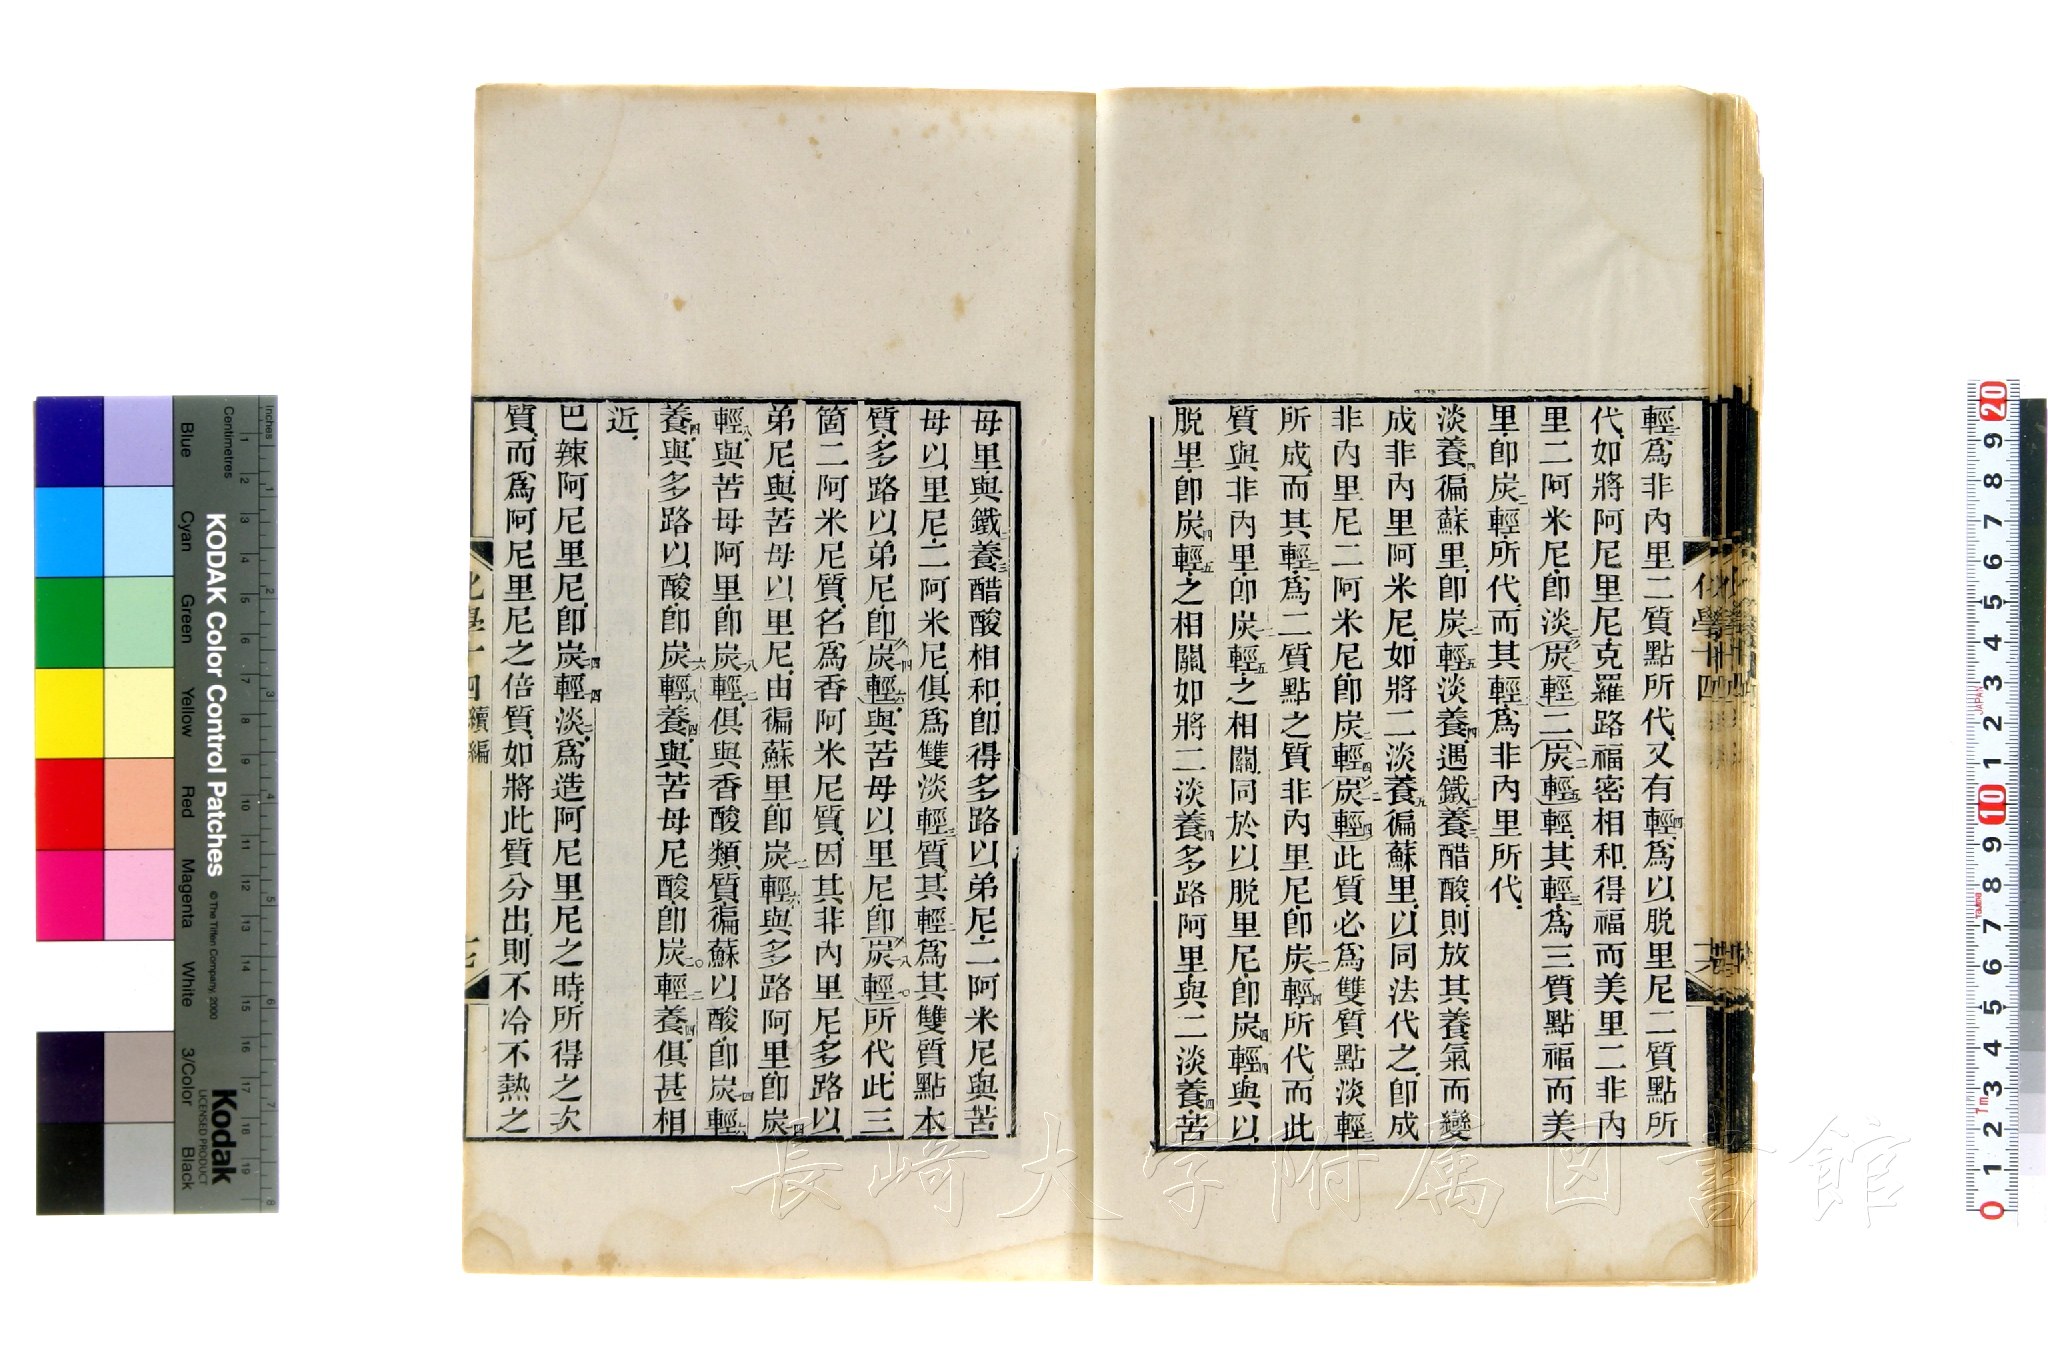 輕爲非內里二質點所代又有輕四爲以脱里尼二質點所
代如將阿尼里尼克羅路福密相和得福而美里二非內
里二阿米尼卽淡二(炭輕)二(炭二輕五)輕其輕三爲三質點福而美
里卽炭輕所代而其輕爲非內里所代
淡養四徧蘇里卽炭二輕五淡養四遇鐵二養三醋酸則放其養氣而變
成非內里阿米尼如將二淡養五徧蘇里以同法代之卽成
非內里尼二阿米尼卽炭二輕四(炭二輕四)此質必爲雙質點淡輕三
所成而其輕二爲二質點之質非內里尼卽炭二輕四所代而此
質與非內里卽炭二輕五之相關同於以脱里尼卽炭四輕四與以
脱里卽炭四輕五之相關如將二淡養四多路阿里與二淡養四苦
母里與鐵二養三醋酸相和卽得多路以弟尼二阿米尼與苦
母以里尼二阿米尼俱爲雙淡輕三質其輕二爲其雙質點本
質多路以弟尼卽(炭一四輕六)與苦母以里尼卽(炭一八輕一〇)所代此三
箇二阿米尼質名爲香阿米尼質因其非內里尼多路以
弟尼與苦母以里尼由徧蘇里卽炭二輕六與多路阿里卽炭四
輕八與苦母阿里卽炭八輕二俱與香酸類質徧蘇以酸卽炭四輕六
養四與多路以酸卽炭六輕八養四與苦母尼酸卽炭二〇輕二養四俱甚相
近
巴辣阿尼里尼卽炭四輕四淡二爲造阿尼里尼之時所得之次
質而爲阿尼里尼之倍質如將此質分出則不冷不熱之
化學十四
化學十四 續編
KODAK Color Control Patches
© The Tiffen Company, 2000
Kodak
LICENSED PRODUCT
Inches
Centimetres
Blue
Cyan
Green
Yellow
Red
Magenta
White
3/Color
Black
長崎大学附属図書館